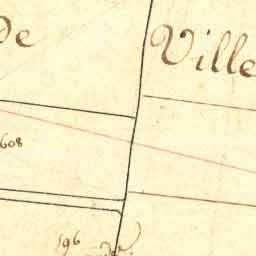 de Ville
608
196